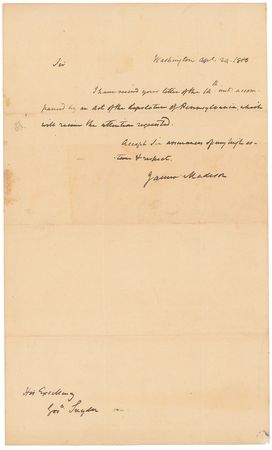 Washington Apl.
Sir
I have received your letter of the accom-
panied by an act of the Legislature of Pennsylvania which
will receive the attention requested.
Accept Sir assurances of my high es-
teem & respect.
James Madison
His Excellency
Govr. Snyder